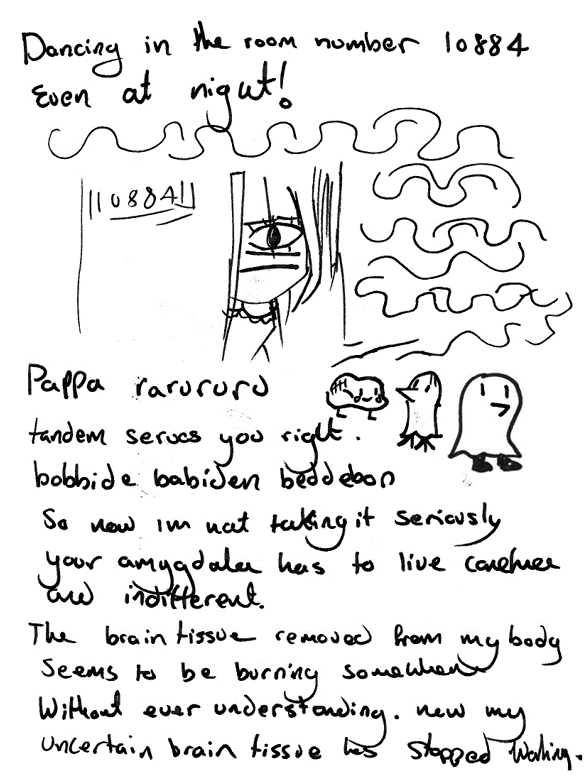 Dancing in the room number 10884
Even at night!
||10884||
Pappa rarururu
tandem serves you right.
bobbide babiden beddebon
So now im not taking it seriously
your amygdalae has to live carefree
and indifferent.
The brain tissue removed from my body
Seems to be burning somewhere
Without ever understanding. now my
uncertain brain tissue has stopped working.